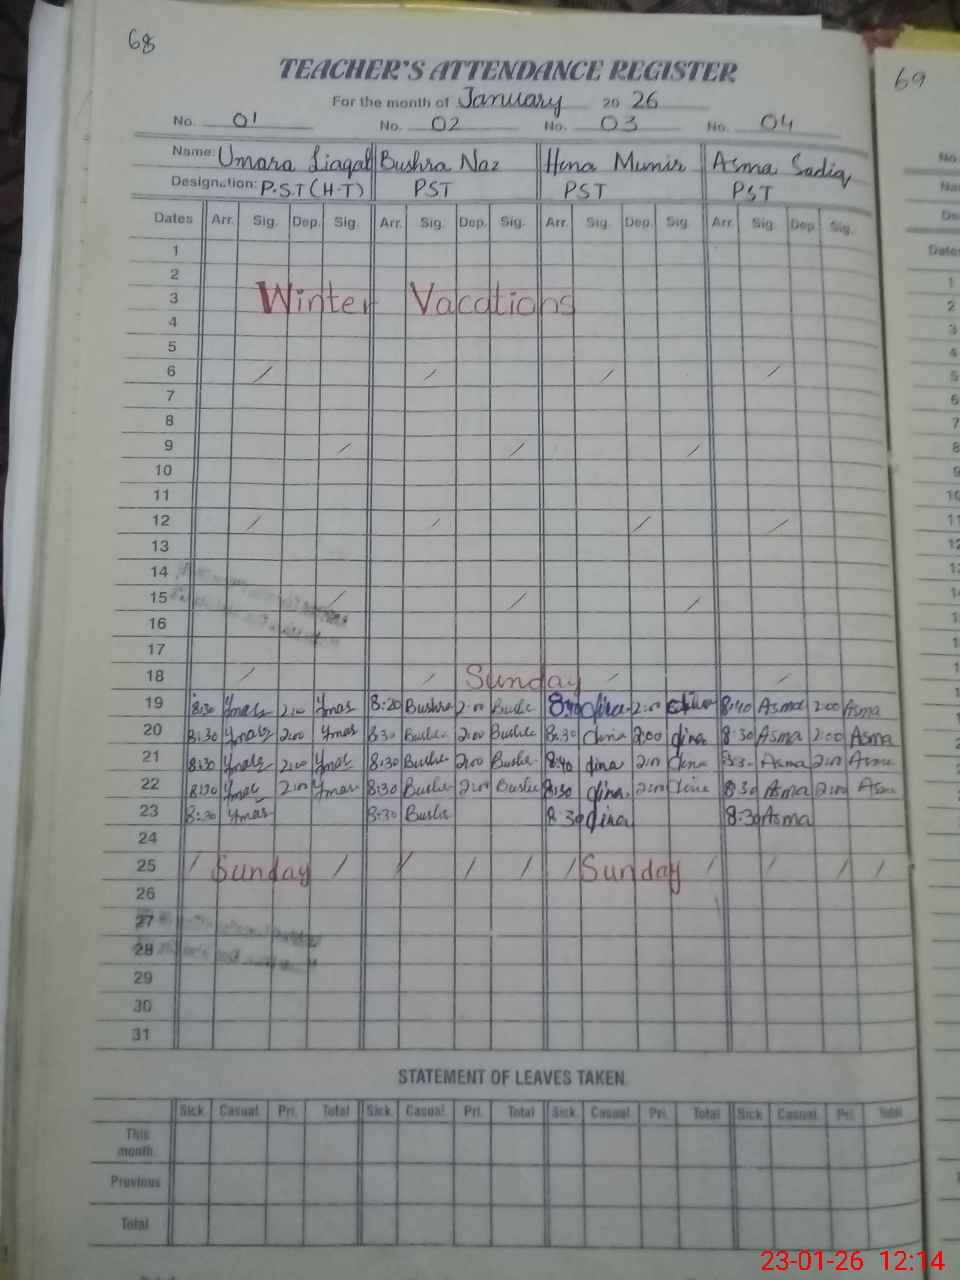 68
TEACHER'S ATTENDANCE REGISTER
For the month of January 20 26
No. 01 No. 02 No. 03 No. 04
Name: Umara Liaqat Bushra Naz Hena Munir Asma Sadiq
Designation: P.S.T (H-T) PST PST PST
Dates Arr. Sig. Dep. Sig. Arr. Sig. Dep. Sig. Arr Sig. Dep. Sig. Arr Sig. Dep Sig.
1
2
3 Winter Vacations
4
5
6
7
8
9
10
11
12
13
14
15
16
17
18 Sunday
19 8:30 2:00 8:20 Bushra 2:00 Bushra 8:40 2:00 8:40 Asma 2:00 Asma
20 8:30 2:00 8:30 Bushra 2:00 Bushra 8:30 2:00 8:30 Asma 2:00 Asma
21 8:30 2:00 8:30 Bushra 2:00 Bushra 8:40 2:00 Asma 2:00 Asma
22 8:30 2:00 8:30 Bushra 2:00 Bushra 8:30 2:00 8:30 Asma 2:00 Asma
23 8:30 8:30 Bushra 8:30 8:30 Asma
24
25 Sunday Sunday
26
27
28
29
30
31
STATEMENT OF LEAVES TAKEN.
Sick Casual Pri. Total Sick. Casual. Pri. Total Sick. Casual Pri. Total Sick. Casual. Pri. Total
This month.
Previous
Total
69
No
Na
De
Dates
1
2
3
4
5
6
7
8
9
10
11
12
23-01-26 12:14